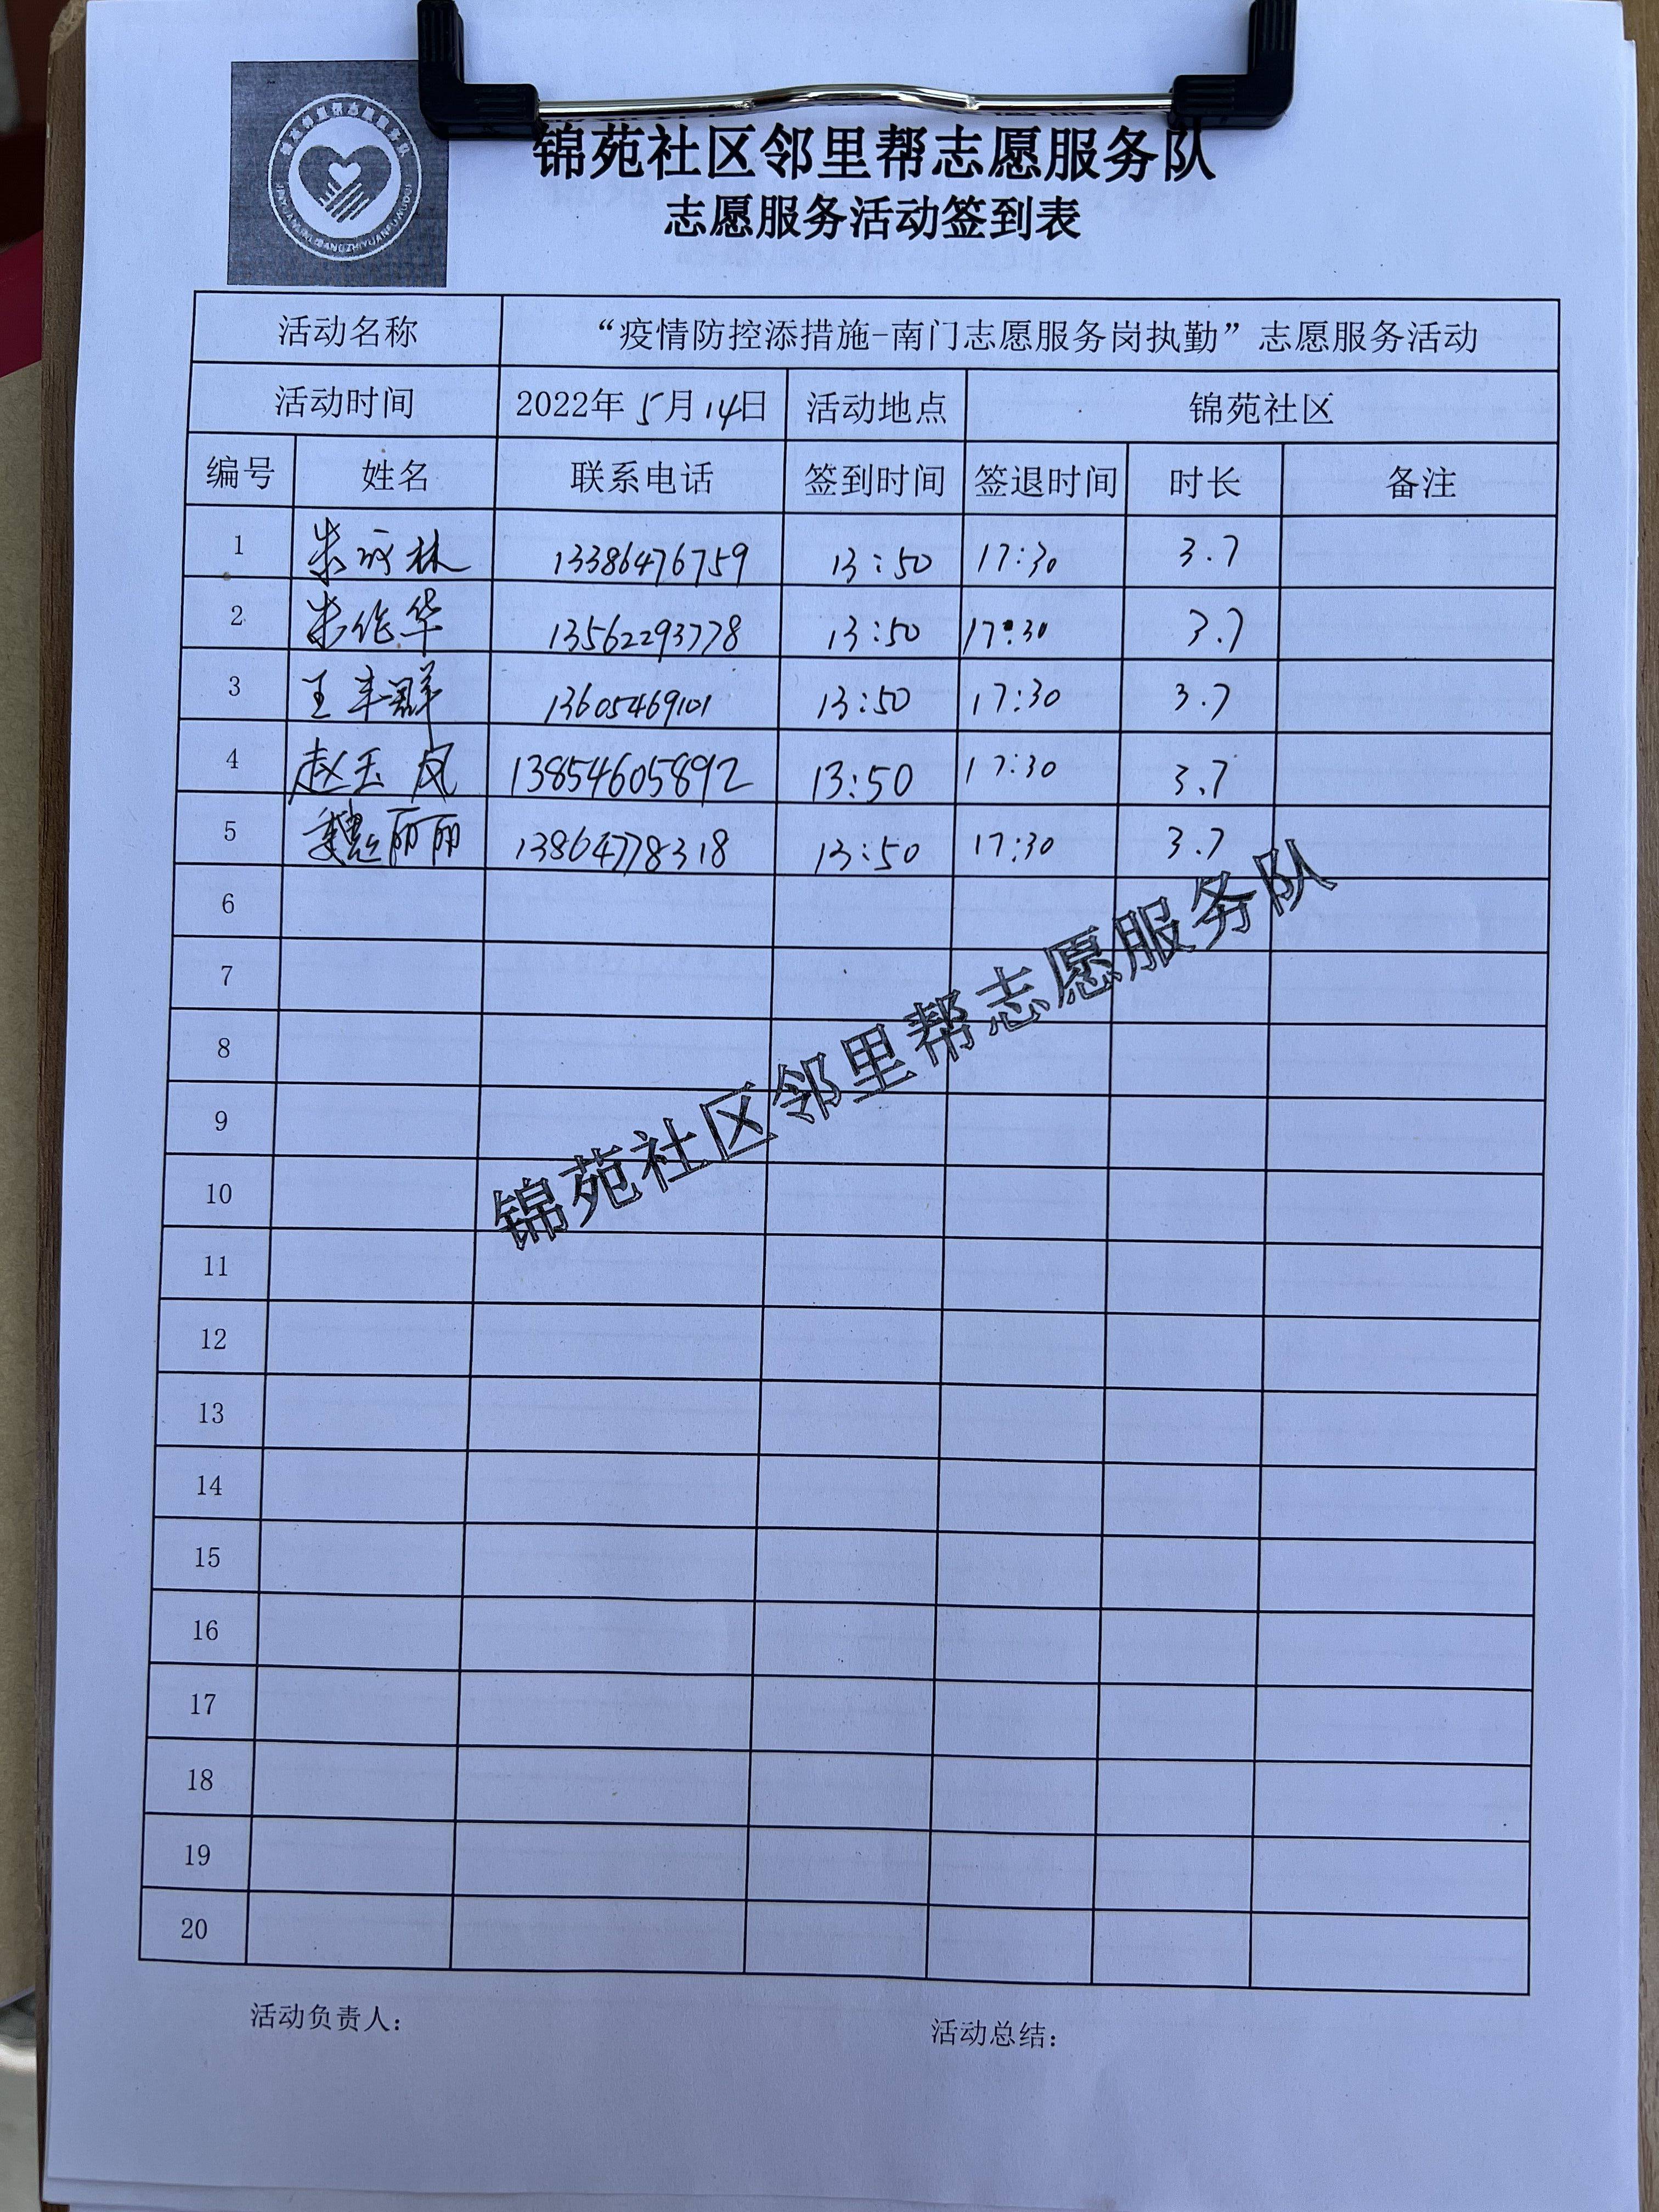 锦苑社区邻里帮志愿服务队
志愿服务活动签到表
活动名称 “疫情防控添措施-南门志愿服务岗执勤”志愿服务活动
活动时间 2022年5月14日 活动地点 锦苑社区
编号 姓名 联系电话 签到时间 签退时间 时长 备注
1 朱林 13386476759 13:50 17:30 3.7
2 朱作华 13562293778 13:50 17:30 3.7
3 王丰群 13605469101 13:50 17:30 3.7
4 赵玉凤 13854605892 13:50 17:30 3.7
5 魏丽丽 13864778318 13:50 17:30 3.7
6
7
8
9
10
11
12
13
14
15
16
17
18
19
20
锦苑社区邻里帮志愿服务队
活动负责人: 活动总结: